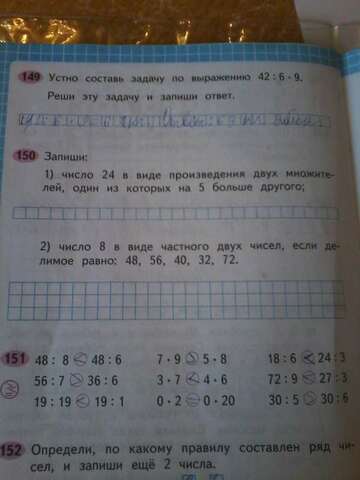 149 Устно составь задачу по выражению 42 : 6 · 9.
Реши эту задачу и запиши ответ.
150 Запиши:
1) число 24 в виде произведения двух множите-
лей, один из которых на 5 больше другого;
2) число 8 в виде частного двух чисел, если де-
лимое равно: 48, 56, 40, 32, 72.
151 48 : 8 < 48 : 6 7 · 9 > 5 · 8 18 : 6 < 24 : 3
56 : 7 > 36 : 6 3 · 7 < 4 · 6 72 : 9 < 27 : 3
19 : 19 < 19 : 1 0 · 2 = 0 · 20 30 : 5 > 30 : 6
152 Определи, по какому правилу составлен ряд чи-
сел, и запиши ещё 2 числа.